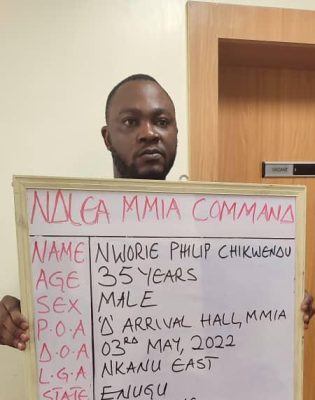 NDLEA MMIA COMMAND
NAME NWORIE PHILIP CHIKWENDU
AGE 35 YEARS
SEX MALE
P.O.A 'D' ARRIVAL HALL, MMIA
D.O.A 03RD MAY, 2022
L.G.A NKANU EAST
STATE ENUGU